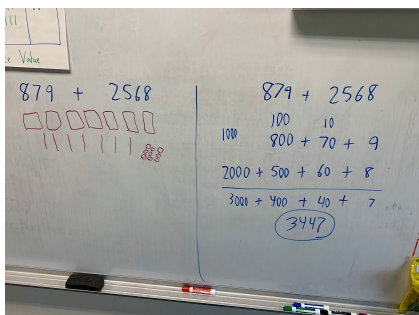 ce Value
879 + 2568
879 + 2568
100 10
1000 800 + 70 + 9
2000 + 500 + 60 + 8
3000 + 400 + 40 + 7
3447